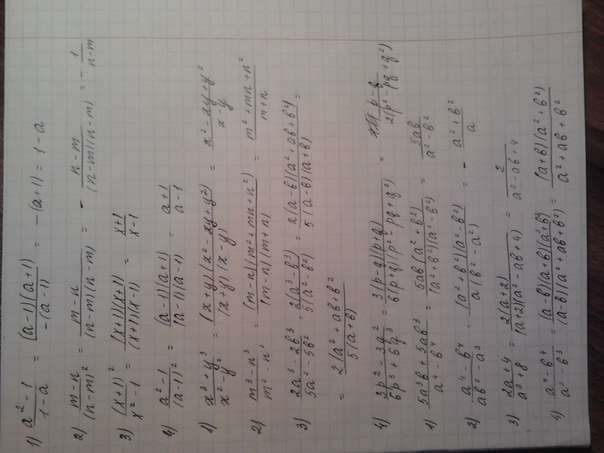 1) (a² - 1)/(1 - a) = ((a-1)(a+1))/(-(a-1)) = -(a+1) = 1 - a
2) (m - n)/(n - m)² = (m - n)/((n-m)(n-m)) = - (n - m)/((n-m)(n-m)) = - 1/(n-m)
3) (x+1)²/(x² - 1) = ((x+1)(x+1))/((x+1)(x-1)) = (x+1)/(x-1)
4) (a² - 1)/(a-1)² = ((a-1)(a+1))/((a-1)(a-1)) = (a+1)/(a-1)
1) (x³ + y³)/(x² - y²) = ((x+y)(x² - xy + y²))/((x+y)(x-y)) = (x² - xy + y²)/(x - y)
2) (m³ - n³)/(m² - n²) = ((m-n)(m² + mn + n²))/((m-n)(m+n)) = (m² + mn + n²)/(m + n)
3) (2a³ - 2b³)/(5a² - 5b²) = (2(a³ - b³))/(5(a² - b²)) = (2(a-b)(a² + ab + b²))/(5(a-b)(a+b)) =
= (2(a² + ab + b²))/(5(a+b))
4) (3p² - 3q²)/(6p³ + 6q³) = (3(p-q)(p+q))/(6(p+q)(p² - pq + q²)) = (p - q)/(2(p² - pq + q²))
1) (5a³b + 5ab³)/(a⁴ - b⁴) = (5ab(a² + b²))/((a² + b²)(a² - b²)) = 5ab/(a² - b²)
2) (a⁴ - b⁴)/(ab² - a³) = ((a² + b²)(a² - b²))/(a(b² - a²)) = - (a² + b²)/a
3) (2a + 4)/(a³ + 8) = (2(a+2))/((a+2)(a² - ab + 4)) = 2/(a² - ab + 4)
4) (a⁴ - b⁴)/(a³ - b³) = ((a-b)(a+b)(a² + b²))/((a-b)(a² + ab + b²)) = ((a+b)(a² + b²))/(a² + ab + b²)